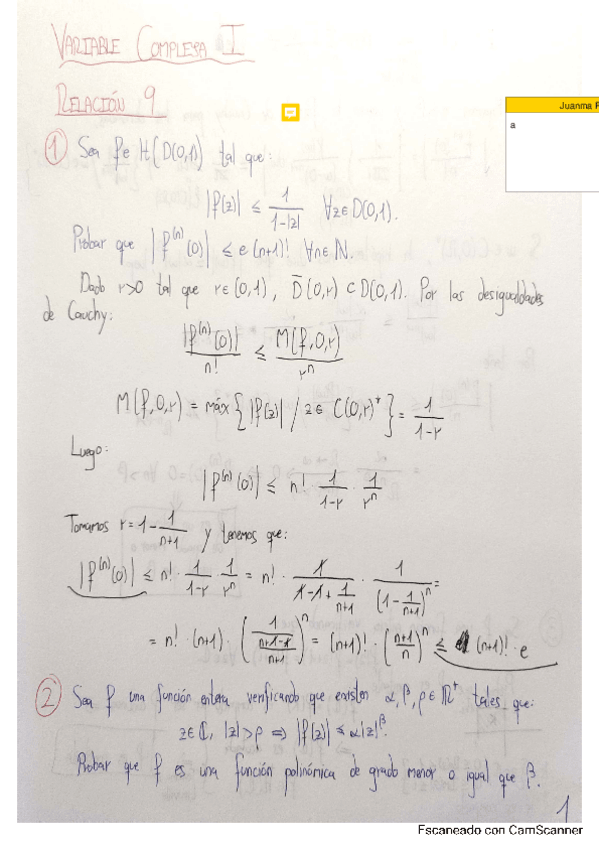 VARIABLE COMPLEJA I
RELACIÓN 9
Juanma
a
1 Sea f ∈ H(D(0,1)) tal que:
|f(z)| ≤ 1/(1-|z|) ∀z∈D(0,1).
Probar que |f^(n)(0)| ≤ e (n+1)! ∀n∈N.
Dado r>0 tal que r∈(0,1), D̄(0,r) ⊂ D(0,1). Por las desigualdades
de Cauchy:
|f^(n)(0)|/n! ≤ M(f,0,r)/r^n
M(f,0,r) = máx{|f(z)| / z∈ C(0,r)*} = 1/(1-r)
Luego:
|f^(n)(0)| ≤ n! · 1/(1-r) · 1/r^n
Tomamos r = 1 - 1/(n+1) y tenemos que:
|f^(n)(0)| ≤ n! · 1/(1-r) · 1/r^n = n! · 1/(1-1+1/(n+1)) · 1/(1-1/(n+1))^n =
= n! · (n+1) · (1/((n+1-1)/(n+1)))^n = (n+1)! · ((n+1)/n)^n ≤ (n+1)! · e
2 Sea f una función entera verificando que existen α, β, ρ ∈ R⁺ tales que:
z∈C, |z|>ρ ⇒ |f(z)| ≤ α|z|^β.
Probar que f es una función polinómica de grado menor o igual que β.
1
Escaneado con CamScanner